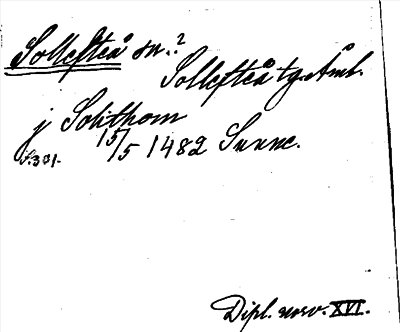 Sollefteå sn.?
Sollefteå tg. Åml.
j Solithom
15/5 1482 Sunne.
S. 301.
Dipl. norv. XVI.